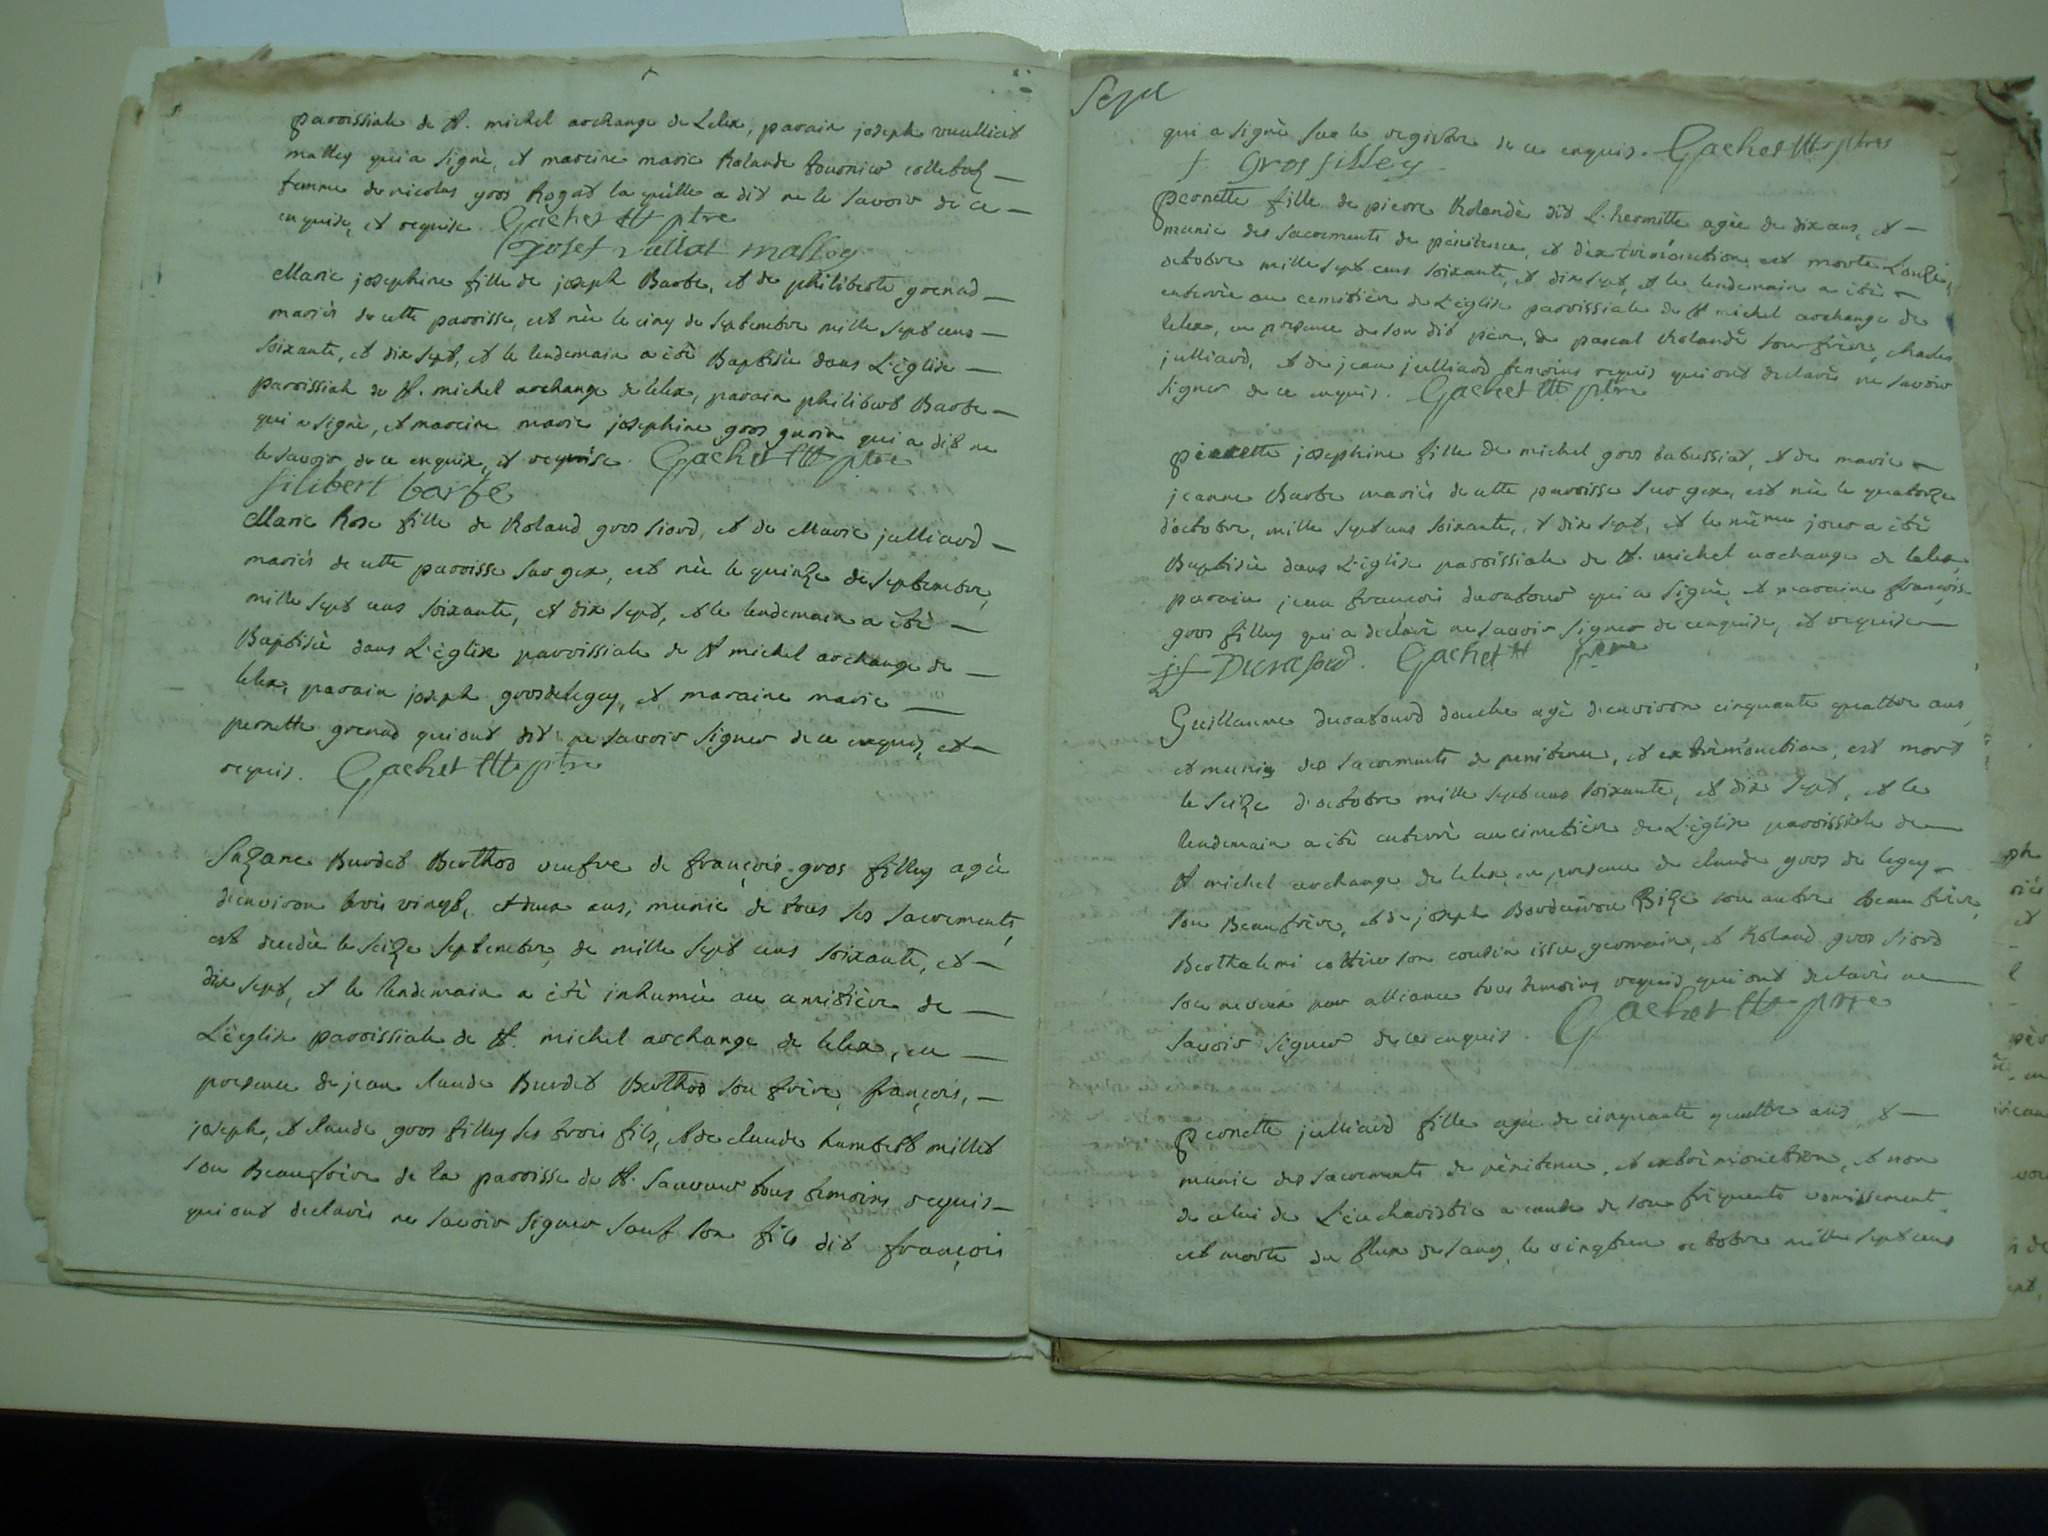 parroissiale de St. michel archange de Lelex, parain joseph vuilliat
malley qui a signè, et mareine marie Rolande tournier colletaz
femme de nicolas gros Rogat la quelle a dit ne le savoir de ce
enquise, et requise. Gachet ptre
josef vuliat malley
Marie josephine fille de joseph Barbe, et de philiberte grenad
mariés de cette parroisse, est nèe le cinq de septembre mille sept cens
soixante, et dix sept, et le lendemain a ètè Baptisèe dans L'èglise
parroissiale de St. michel archange de lelex, parain philibert Barbe
qui a signè, et mareine marie josephine gros gurin qui a dit ne
le savoir de ce enquise, et requise. Gachet ptre
filibert barbe
Marie Rose fille de Roland gros siord, et de Marie julliard
mariés de cette parroisse sur gex, est nèe le quinze de septembre,
mille sept cens soixante, et dix sept, et le lendemain a ètè
Baptisèe dans L'èglise parroissiale de St michel archange de
lelex, parain joseph gros de legey, et maraine marie
pernette grenad qui ont dit ne savoir signer de ce enquis, et
requis. Gachet ptre
Suzane Burdet Berthod veufve de françois gros filley agèe
d'environ trois vingt, et deux ans, munie de tous ses sacrements,
est decedèe le seize septembre, de mille sept cens soixante, et
dix sept, et le lendemain a ètè inhumèe au cimitière de
L'èglise parroissiale de St. michel archange de lelex, en
presence de jean claude Burdet Berthod son frère, françois,
joseph, et claude gros filley ses trois fils, et de claude humbert millet
son Beaufrère de la parroisse de St. Sauveur tous temoins requis
qui ont declarès ne savoir signer sauf son fils dit françois
Sept
qui a signè sur le registre de ce enquis. Gachet ptre
f grosfilley
Pernette fille de pierre Rolandè dit L'hermitte agèe de dix ans, et
munie des sacrements de pènitence, et d'extrèmonction est morte L'onze
octobre mille sept cens soixante, et dix sept, et le lendemain a ètè
enterrèe au cemitière de L'èglise parroissiale de St michel archange de
lelex, en presence de son dit père, de pascal Rolandè son frère, charles
julliard, et de jean julliard temoins requis qui ont declarès ne savoir
signer de ce enquis. Gachet ptre
josephine fille de michel gros babussiat, et de marie
jeanne Barbe mariés de cette parroisse sur gex, est nèe le quatorze
d'octobre, mille sept cens soixante, et dix sept, et le même jour a ètè
Baptisèe dans L'èglise parroissiale de St. michel archange de lelex,
parain jean françois durafour qui a signè, et maraine françoise
gros filley qui a declarè ne savoir signer de ce enquise, et requise
jf Durafour. Gachet ptre
Guillaume durafourd douche agè d'environ cinquante quattre ans,
et munis des sacrements de penitence, et extrèmonction, est mort
le seize d'octobre mille sept cens soixante, et dix sept, et le
lendemain a ètè enterrè au cimetière de L'èglise parroissiale de
St michel archange de lelex, en presence de claude gros de legey
son Beaufrère, et de joseph Bordeiron Bize son autre beau frère,
Berthalemi cottier son cousin issu germain, et Roland gros siord
son neveux par alliance tous temoins requis qui ont declarès ne
savoir signer de ce enquis. Gachet ptre
Pernette julliard fille agée de cinquante quattre ans, et
munie des sacrements de pènitence, et extrèmonction, et non
de celui de L'eucharistie a cause de son frèquents vomissement
est morte du flux de sang, le vingt un octobre mille sept cens